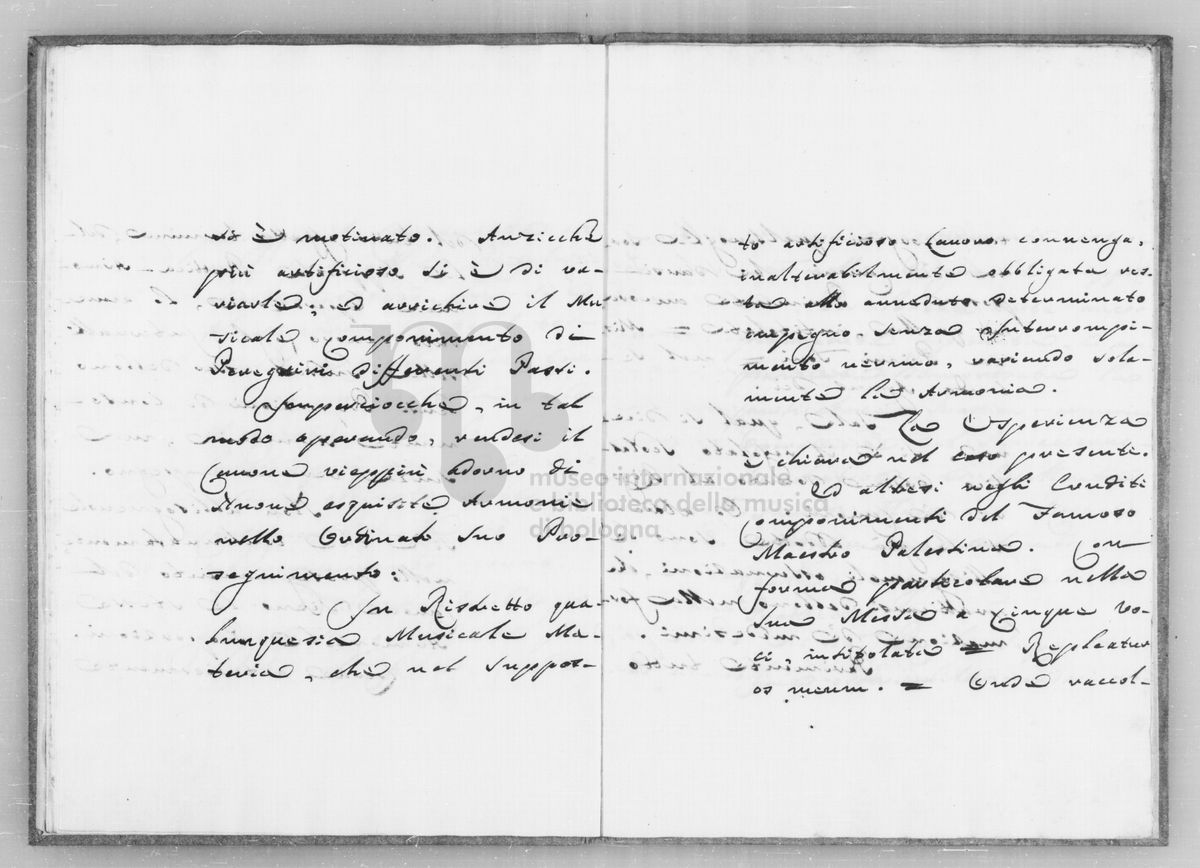 si è motivato. Anzicchè
più artificioso si è di va-
riarle, ed arrichire il Mu-
sicale Componimento di
Peregrini differenti Passi.
Imperciocchè, in tal
modo operando, rendesi il
Canone vieppiù adorno di
Nuove esquisite Armonie
nello Ordinato suo Pro-
seguimento.
In Ristretto qua-
lunquesia Musicale Ma-
teria, che nel suppos-
to artificioso Lavoro convenga,
inalterabilmente obbligata res-
ta allo anneduto determinato
impegno senza Interrompi-
mento nermo, variendo sola-
mente le Armonia.
La Esperienza
è chiara nel caso presente.
Ed altresi negli Eruditi
Componimenti del Famoso
Maestro Palestina. Con
forma particolare nella
sua Messa a Cinque vo-
ci, intitolata = Repleatur
os meum. = Onde raccol-
museo internazionale
e biblioteca della musica
di bologna